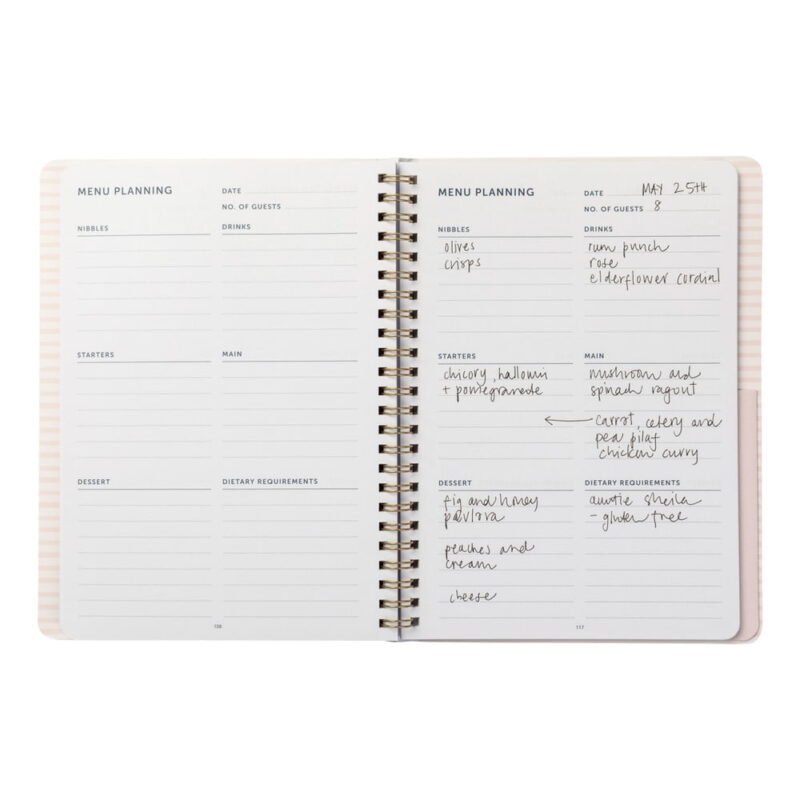 MENU PLANNING
DATE
NO. OF GUESTS
NIBBLES
DRINKS
STARTERS
MAIN
DESSERT
DIETARY REQUIREMENTS
MENU PLANNING
DATE MAY 25TH
NO. OF GUESTS 8
NIBBLES
olives
crisps
DRINKS
rum punch
rose
elderflower cordial
STARTERS
chicory, halloumi
+ pomegranate
MAIN
mushroom and
spinach ragout
carrot, celery and
pea pilaf
chicken curry
DESSERT
fig and honey
pavlova
peaches and
cream
cheese
DIETARY REQUIREMENTS
auntie sheila
- gluten free
117